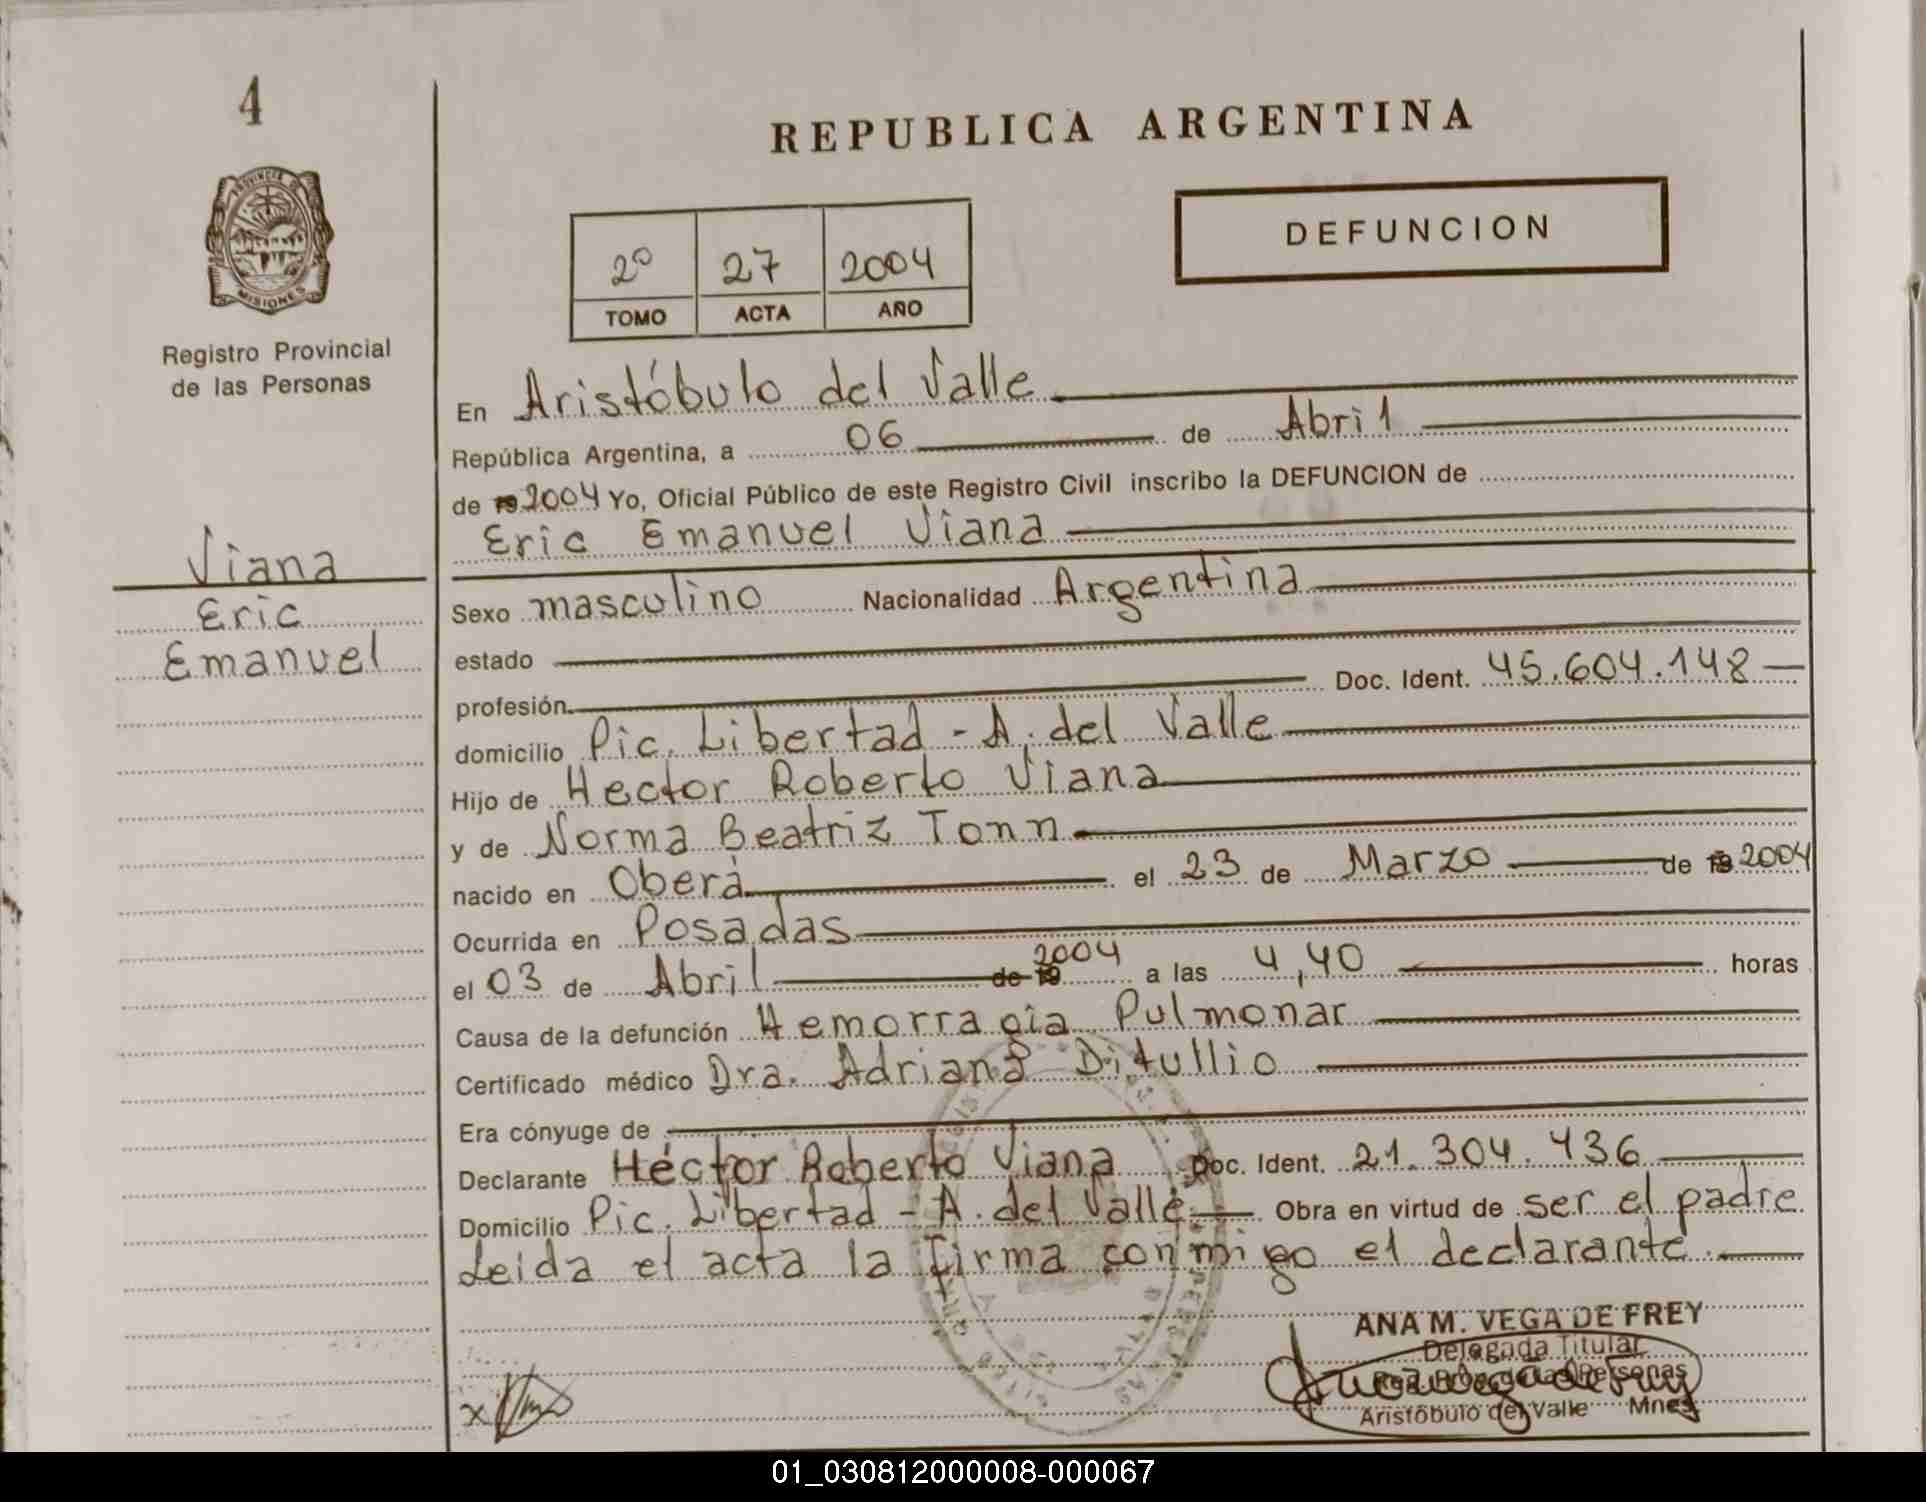 4
PROVINCIA DE
MISIONES
Registro Provincial
de las Personas
Viana
Eric
Emanuel
REPUBLICA ARGENTINA
DEFUNCION
2º 27 2004
TOMO ACTA AÑO
En Aristóbulo del Valle
República Argentina, a 06 de Abril
de 19 2004 Yo, Oficial Público de este Registro Civil inscribo la DEFUNCION de
Eric Emanuel Viana
Sexo masculino Nacionalidad Argentina
estado
profesión Doc. Ident. 45.604.148
domicilio Pic. Libertad - A. del Valle
Hijo de Hector Roberto Viana
y de Norma Beatriz Tonn
nacido en Oberá el 23 de Marzo de 19 2004
Ocurrida en Posadas
el 03 de Abril de 19 2004 a las 4,40 horas
Causa de la defunción Hemorragia Pulmonar
Certificado médico Dra. Adriana Ditullio
Era cónyuge de
Declarante Héctor Roberto Viana Doc. Ident. 21.304.436
Domicilio Pic. Libertad - A. del Valle Obra en virtud de ser el padre
Leida el acta la firma conmigo el declarante.
ANA M. VEGA DE FREY
Delegada Titular
Reg. Prov. de las Personas
Aristóbulo del Valle Mnes
x
01_030812000008-000067